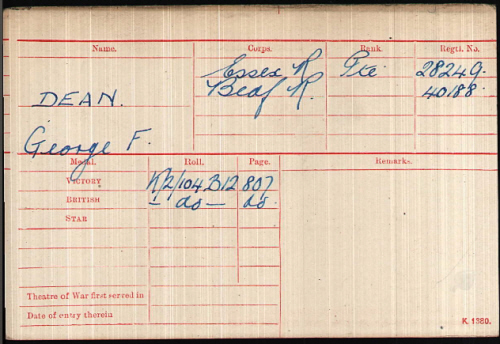 Name. Corps. Rank. Regtl. No.
Essex R Pte 28249.
DEAN. Bedf R. 40188.
George F.
Medal. Roll. Page. Remarks.
VICTORY K/2/104 B12 807
BRITISH — do — do.
STAR
Theatre of War first served in
Date of entry therein
K. 1380.